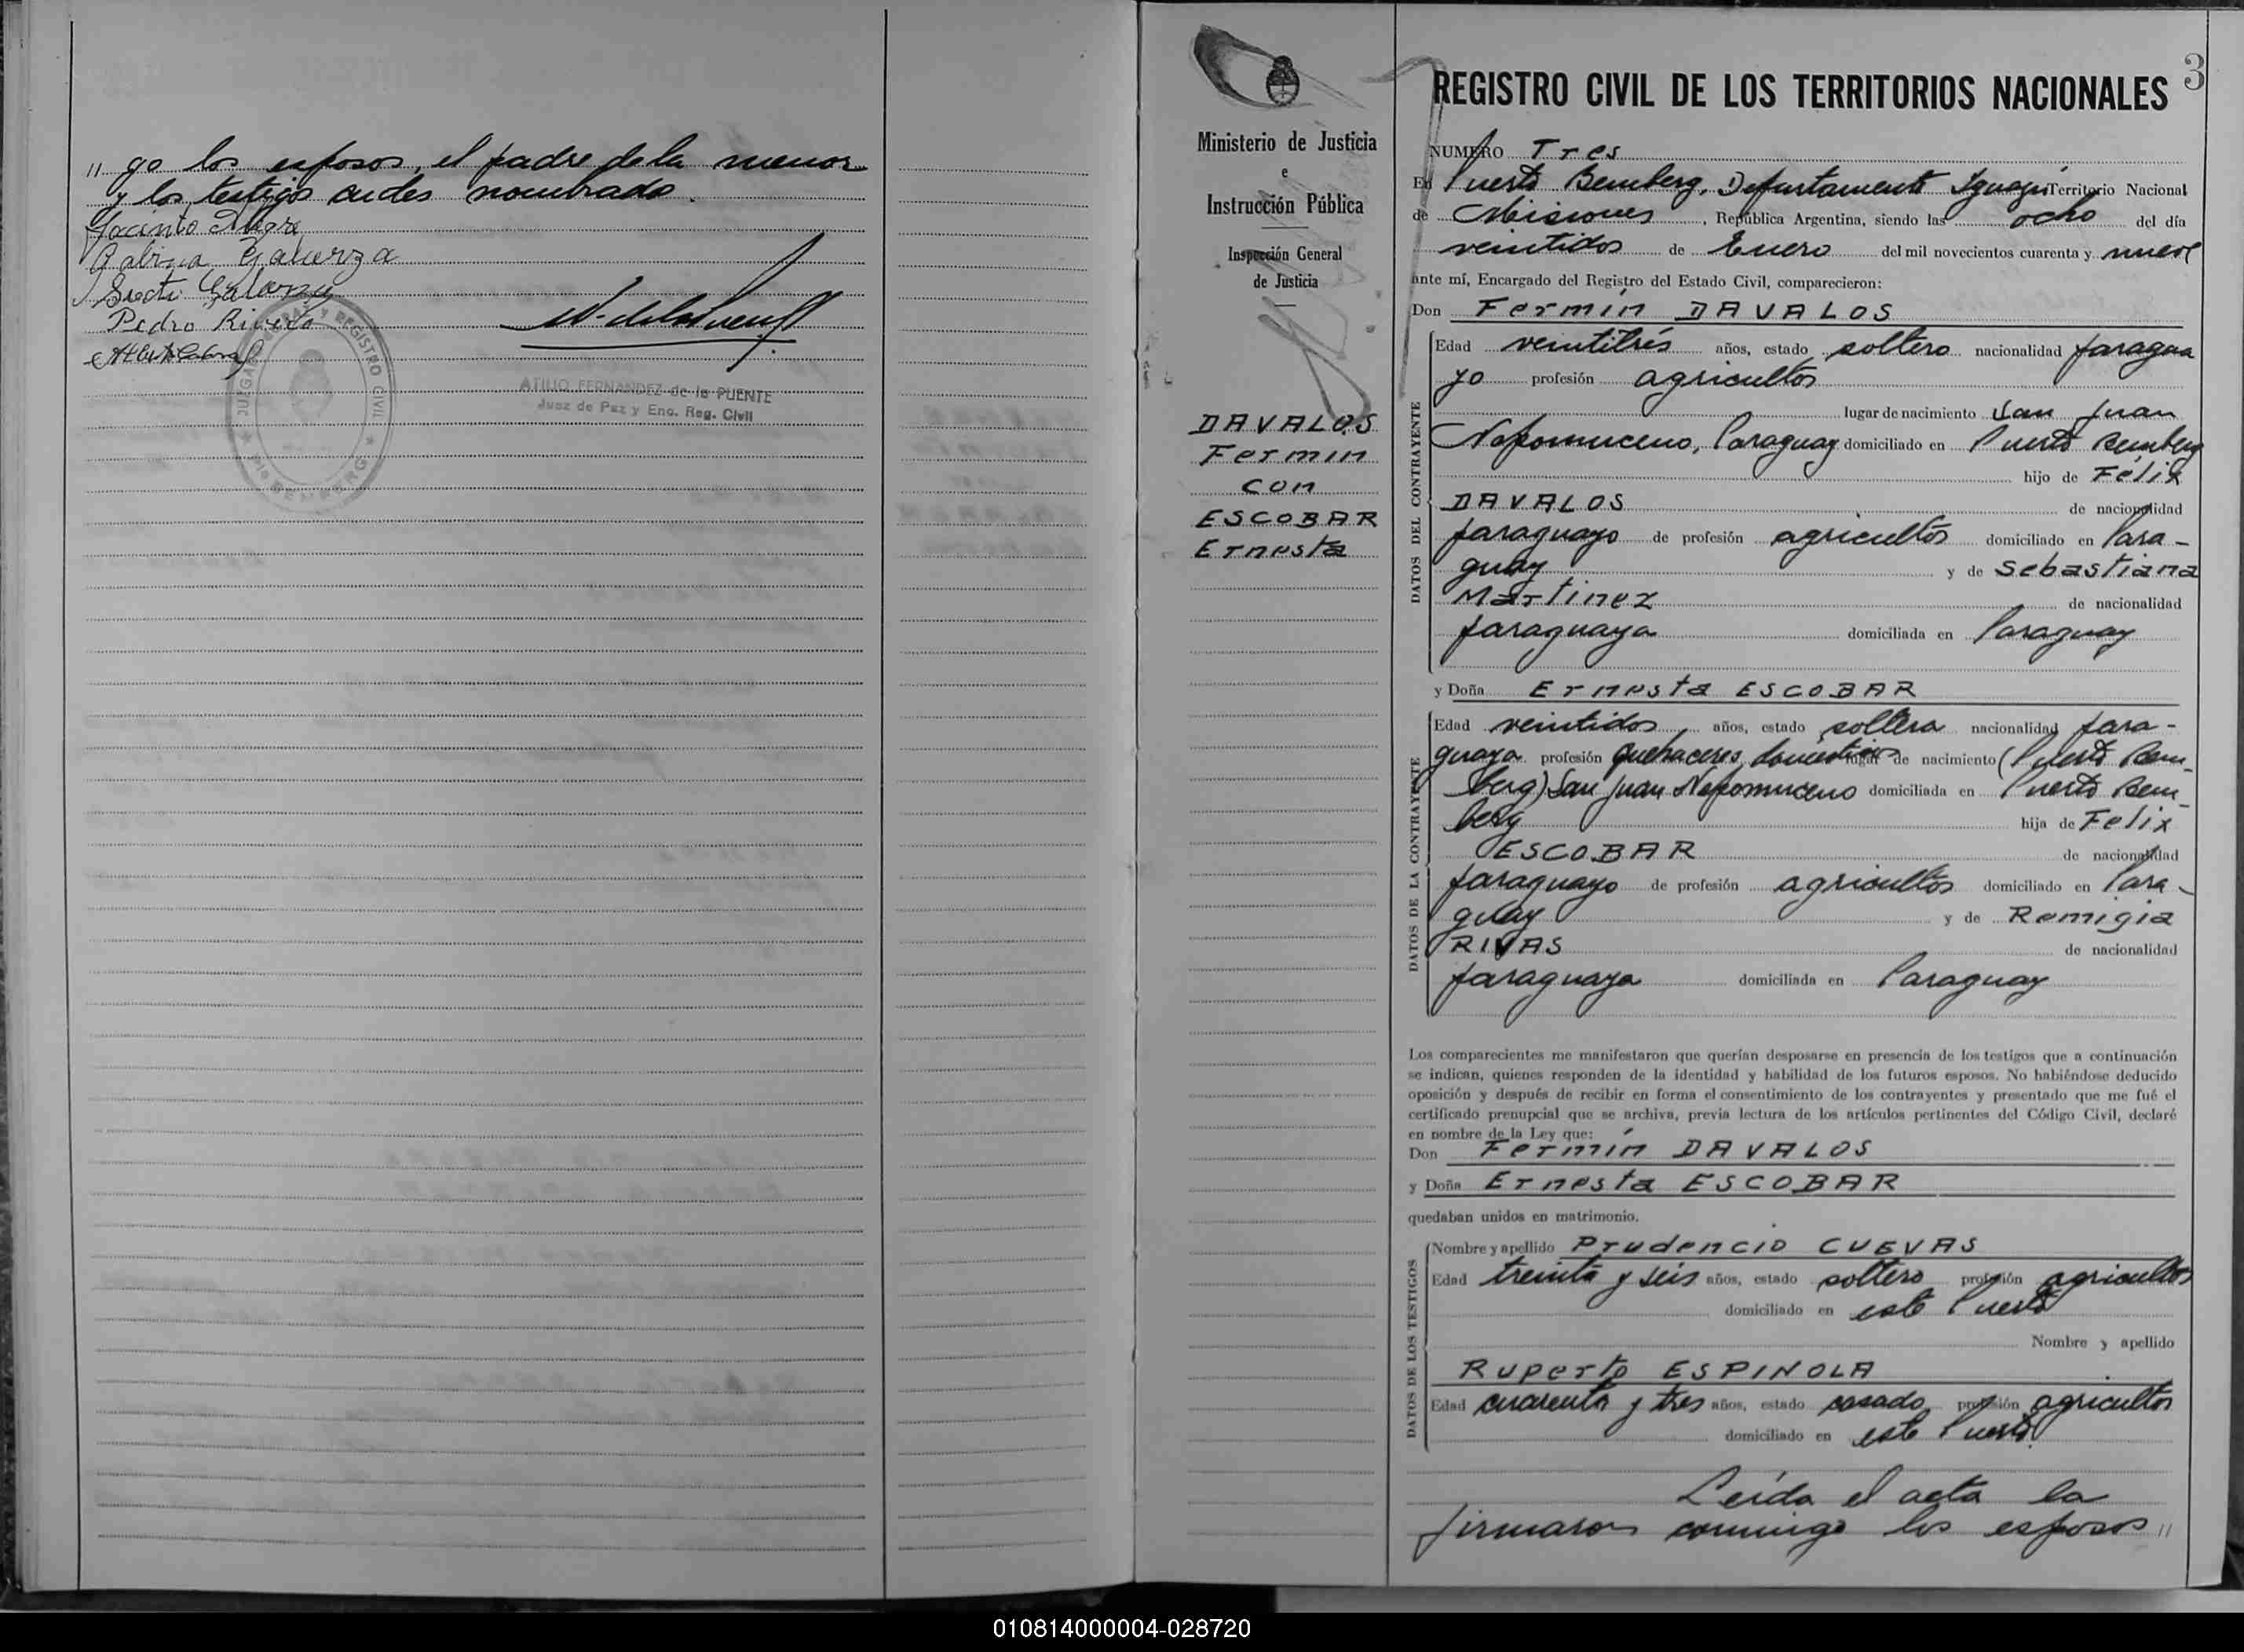 " go los esposos, el padre de la menor
y los testigos antes nombrado.
Jacinto
Gabina Galarza
Galarza
Pedro Rivero
JUZGADO DE PAZ Y REGISTRO CIVIL
Pto BEMBERG
ATILIO FERNANDEZ de la PUENTE
Juez de Paz y Enc. Reg. Civil
Ministerio de Justicia
e
Instrucción Pública
Inspección General
de Justicia
DAVALOS
Fermin
con
ESCOBAR
Ernesta
3
REGISTRO CIVIL DE LOS TERRITORIOS NACIONALES
NUMERO Tres
En Puerto Bemberg, Departamento Iguazú Territorio Nacional
de Misiones, República Argentina, siendo las ocho del día
veintidos de Enero del mil novecientos cuarenta y nueve
ante mí, Encargado del Registro del Estado Civil, comparecieron:
Don Fermín DAVALOS
DATOS DEL CONTRAYENTE
Edad veintitrés años, estado soltero nacionalidad paragua
yo profesión agricultor
lugar de nacimiento San Juan
Nepomuceno, Paraguay domiciliado en Puerto Bemberg
hijo de Félix
DAVALOS de nacionalidad
paraguayo de profesión agricultor domiciliado en Para-
guay y de Sebastiana
Martinez de nacionalidad
paraguaya domiciliada en Paraguay
y Doña Ernesta ESCOBAR
DATOS DE LA CONTRAYENTE
Edad veintidos años, estado soltera nacionalidad para-
guaya profesión quehaceres domésticos lugar de nacimiento (Puerto Bem-
berg) San Juan Nepomuceno domiciliada en Puerto Bem-
berg hija de Felix
ESCOBAR de nacionalidad
paraguayo de profesión agricultor domiciliado en Para-
guay y de Remigia
RIVAS de nacionalidad
paraguaya domiciliada en Paraguay
Los comparecientes me manifestaron que querían desposarse en presencia de los testigos que a continuación
se indican, quienes responden de la identidad y habilidad de los futuros esposos. No habiéndose deducido
oposición y después de recibir en forma el consentimiento de los contrayentes y presentado que me fué el
certificado prenupcial que se archiva, previa lectura de los artículos pertinentes del Código Civil, declaré
en nombre de la Ley que:
Don Fermín DAVALOS
y Doña Ernesta ESCOBAR
quedaban unidos en matrimonio.
DATOS DE LOS TESTIGOS
Nombre y apellido Prudencio CUEVAS
Edad treinta y seis años, estado soltero profesión agricultor
domiciliado en este Puerto
Nombre y apellido
Ruperto ESPINOLA
Edad cuarenta y tres años, estado casado profesión agricultor
domiciliado en este Puerto.
Leída el acta la
firmaron conmigo los esposos "
010814000004-028720